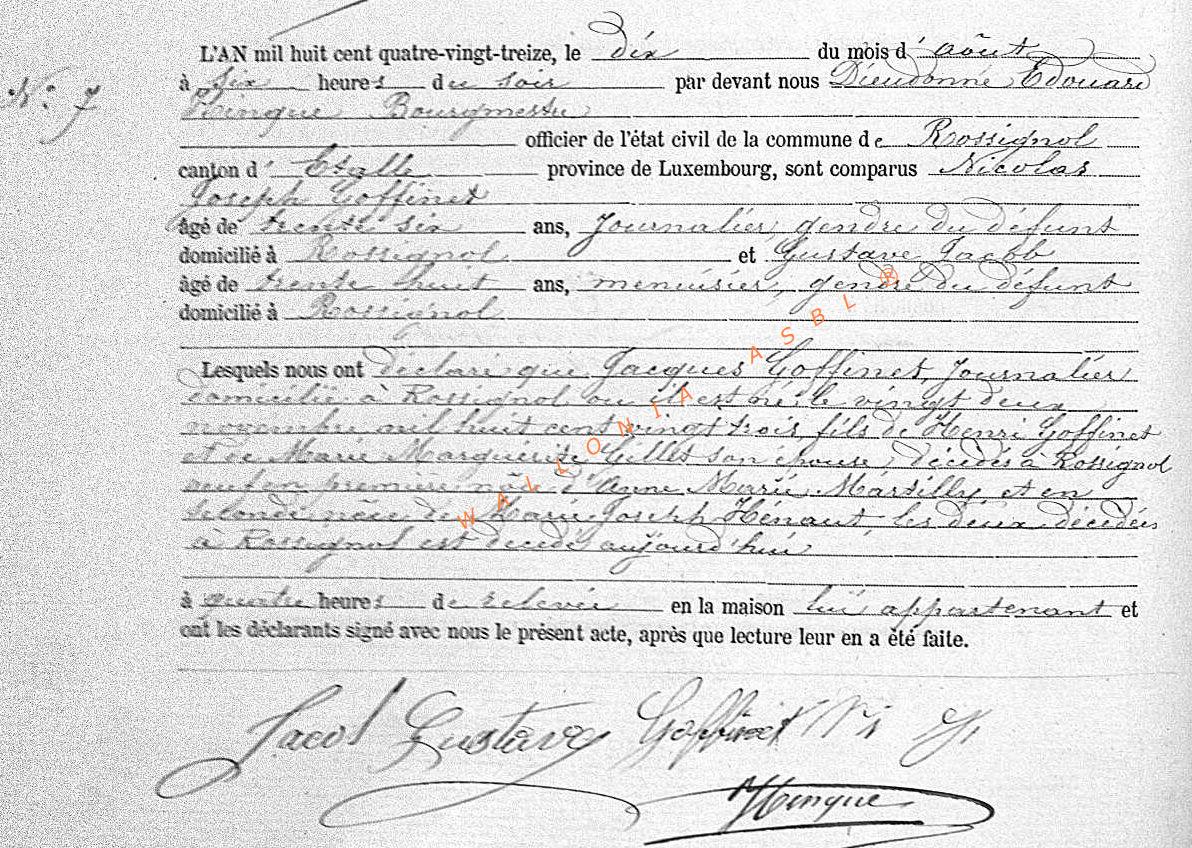 L'AN mil huit cent quatre-vingt-treize, le dix du mois d' août
N° 7
à six heures du soir par devant nous Dieudonné Edouard
Hinque Bourgmestre
officier de l'état civil de la commune de Rossignol
canton d' Etalle province de Luxembourg, sont comparus Nicolas
Joseph Goffinet
âgé de trente six ans, Journalier, gendre du défunt
domicilié à Rossignol et Gustave Jacob
âgé de trente huit ans, menuisier, gendre du défunt
domicilié à Rossignol
Lesquels nous ont déclaré que Jacques Goffinet, Journalier
domicilié à Rossignol ou il est né le vingt deux
novembre mil huit cent vingt trois, fils de Henri Goffinet
et de Marie Marguérite Gillet son épouse, décédés à Rossignol
veuf en première nôce d'Anne Marie Martilly et en
seconde nôce de Marie Joseph Hénaut les deux décédées
à Rossignol est décédé aujourd'hui
à quatre heures de relevée en la maison lui appartenant et
ont les déclarants signé avec nous le présent acte, après que lecture leur en a été faite.
Jacob Gustave Goffinet Ni J.
Hinque
WALLONIA ASBL ®